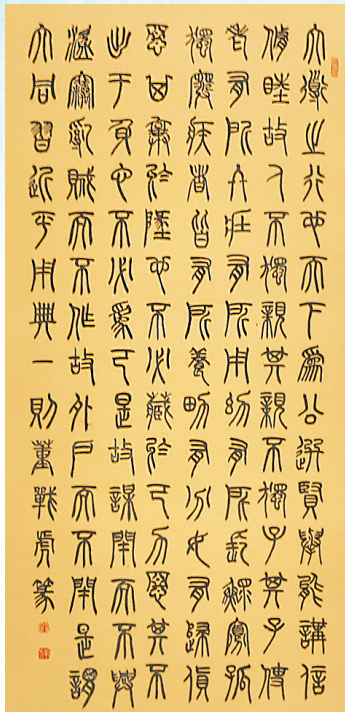 大道之行也天下為公選賢與能講信
修睦故人不獨親其親不獨子其子使
老有所終壯有所用幼有所長鰥寡孤
獨廢疾者皆有所養男有分女有歸貨
惡其棄於地也不必藏於己力惡其不
出于身也不必為己是故謀閉而不興
盜竊亂賊而不作故外戶而不閉是謂
大同習近平用典一則董戰虎篆